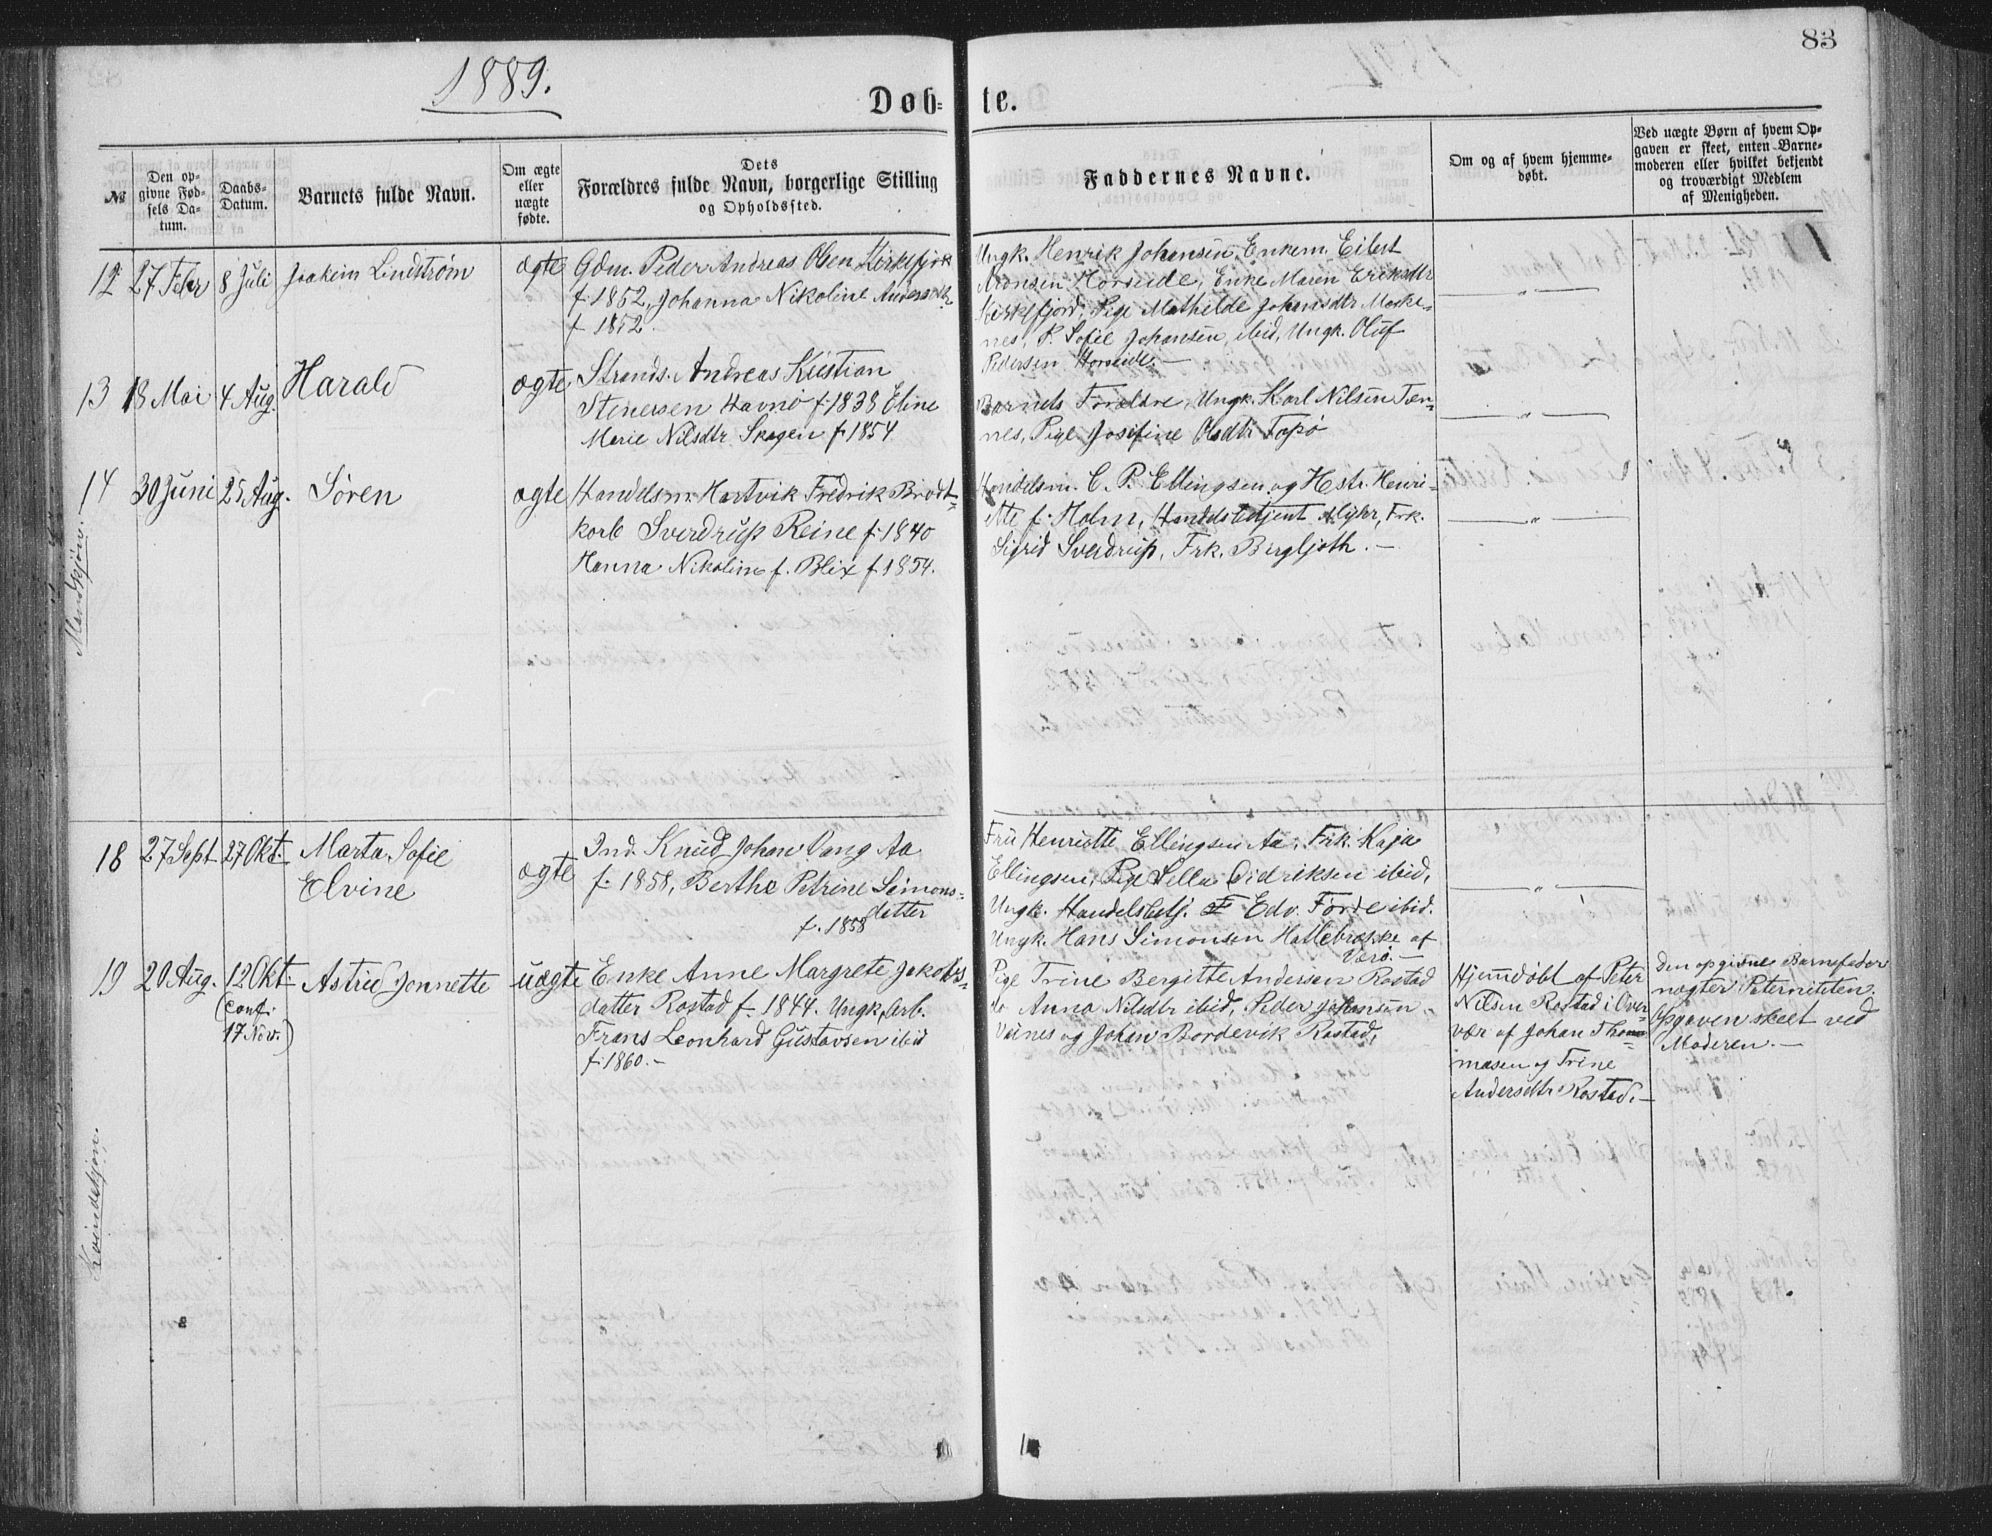 1889.
83
Døb-
te.
№
Den op-
givne Fød-
sels Da-
tum.
Daabs-
Datum.
Barnets fulde Navn.
Om ægte
eller
uægte
fødte.
Dets
Forældres fulde Navn, borgerlige Stilling
og Opholdssted.
Faddernes Navne.
Om og af hvem hjemme-
døbt.
Ved uægte Børn af hvem Op-
gaven er skeet, enten Barne-
moderen eller hvilket bekjendt
og troværdigt Medlem
af Menigheden.
Mandkjøn.
12 27 Febr 8 Juli Joakim Lindstrøm ægte
Gdm. Peder Andreas Olsen Kirkefjord
f. 1852, Johanna Nikoline Andersdtr
f. 1852.
Ungk. Henrik Johansen, Enkem. Eilert
Aronsen Horseide, Enke Maren Eriksdtr
Kirkefjord, Pige Mathilde Johansdtr Moske-
nes, P. Sofie Johansen, ibid, Ungk. Oluf
Pedersen Horseide. —
— „ —
13 18 Mai 4 Aug. Harald ægte
Strands. Andreas Kristian
Stenersen Havnø f. 1838 Eline
Marie Nilsdtr Skagen f. 1854
Barnets Forældre, Ungk. Karl Nilsen Tæn-
nes, Pige Josefine Olsdtr Topø
— „ —
14 30 Juni 25 Aug. Søren ægte
Handelsm. Hartvik Fredrik Brodt-
korb Sverdrup Reine f. 1840
Hanna Nikoline f. Blix f. 1854.
Handelsm. C. P. Ellingsen og Hstr. Henri-
ette f. Holm, Handelsbetjent Myhr, Frk.
Sigrid Sverdrup, Frk. Bergljoth. —
— „ —
Kvindekjøn.
18 27 Sept 27 Okt. Marta Sofie
Elvine
ægte
Ind. Knud Johan Vang Aa
f. 1858, Berthe Petrine Simons-
datter
f. 1858
Fru Henriette Ellingsen Aa, Frk. Kaja
Ellingsen, Pige Sella Didriksen ibid,
Ungk. Handelsbetj. Edv. Førde ibid.
Ungk. Hans Simonsen Hallebrække af
Værø. —
— „ —
19 20 Aug. 12 Okt. Astrid Jonnette uægte
(conf.
17 Nov.)
Enke Anne Margrete Jakobs-
datter Rostad f. 1844. Ungk, Arb.
Frans Leonhard Gustavsen ibid
f. 1860. —
Pige Trine Bergitte Andersen Rostad
do Anna Nilsdtr ibid, Peder Johansen
Veines og Johan Bordevik Rostad,
Hjemdøbt af Peter
Nilsen Rostad i Over-
vær af Johan Thom-
masen og Trine
Andersdtr Rostad. —
Den opgivne Barnefader
nægter Paterniteten.
Opgaven skeet ved
Moderen. —